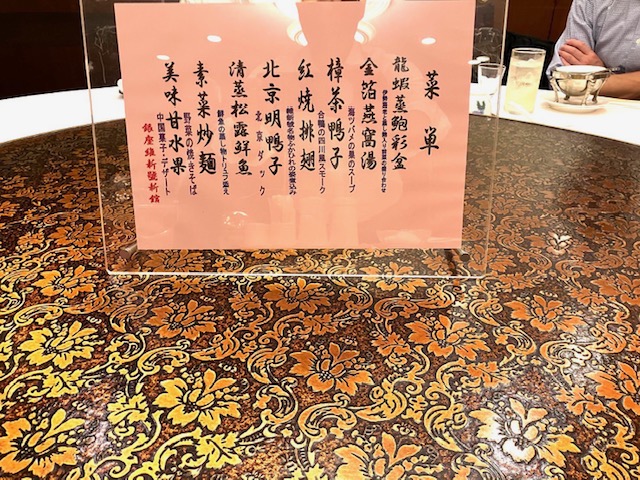 菜単
龍蝦蒸鮑彩盒
伊勢海老と蒸し鮑入り前菜の盛り合わせ
金箔燕窩湯
海ツバメの巣のスープ
樟茶鴨子
合鴨の四川風スモーク
紅焼排翅
北京明鴨子
北京ダック
清蒸松露鮮魚
鮮魚の蒸し物トリュフ添え
素菜炒麺
野菜の焼きそば
美味甘水果
中国菓子・デザート
銀座維新號新館